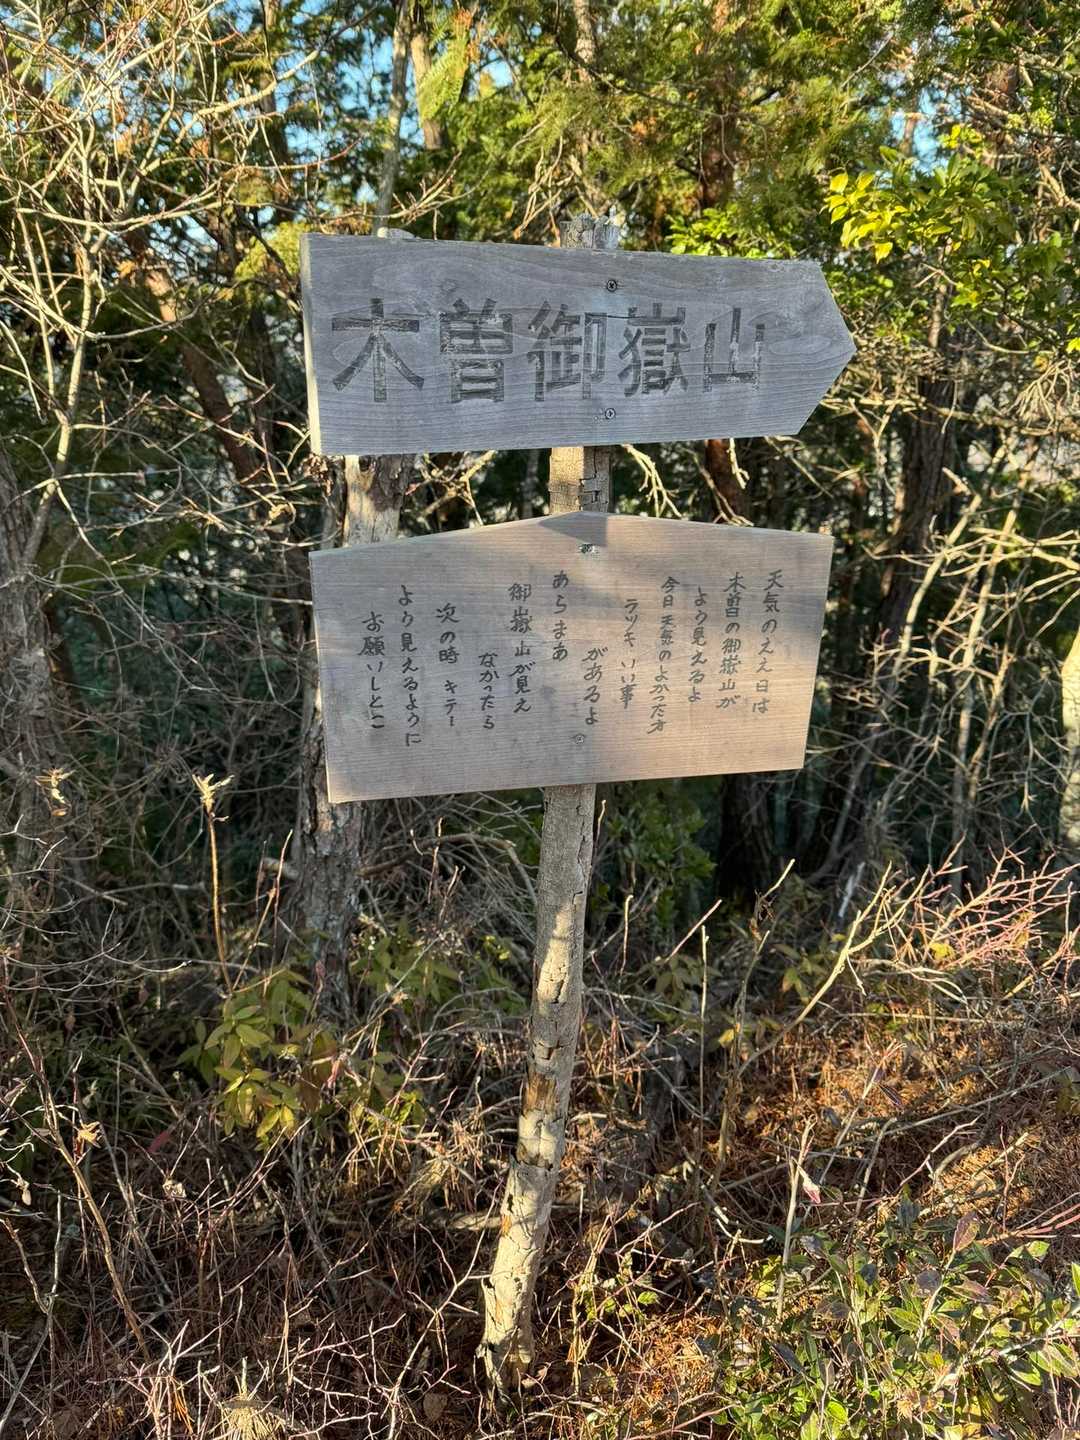 木曽御嶽山
天気のええ日は
木曽の御嶽山が
より見えるよ
今日天気のよかった方
ラッキ いい事
があるよ
あらまあ
御嶽山が見え
なかったら
次の時 キテー
より見えるように
お願いしとこ